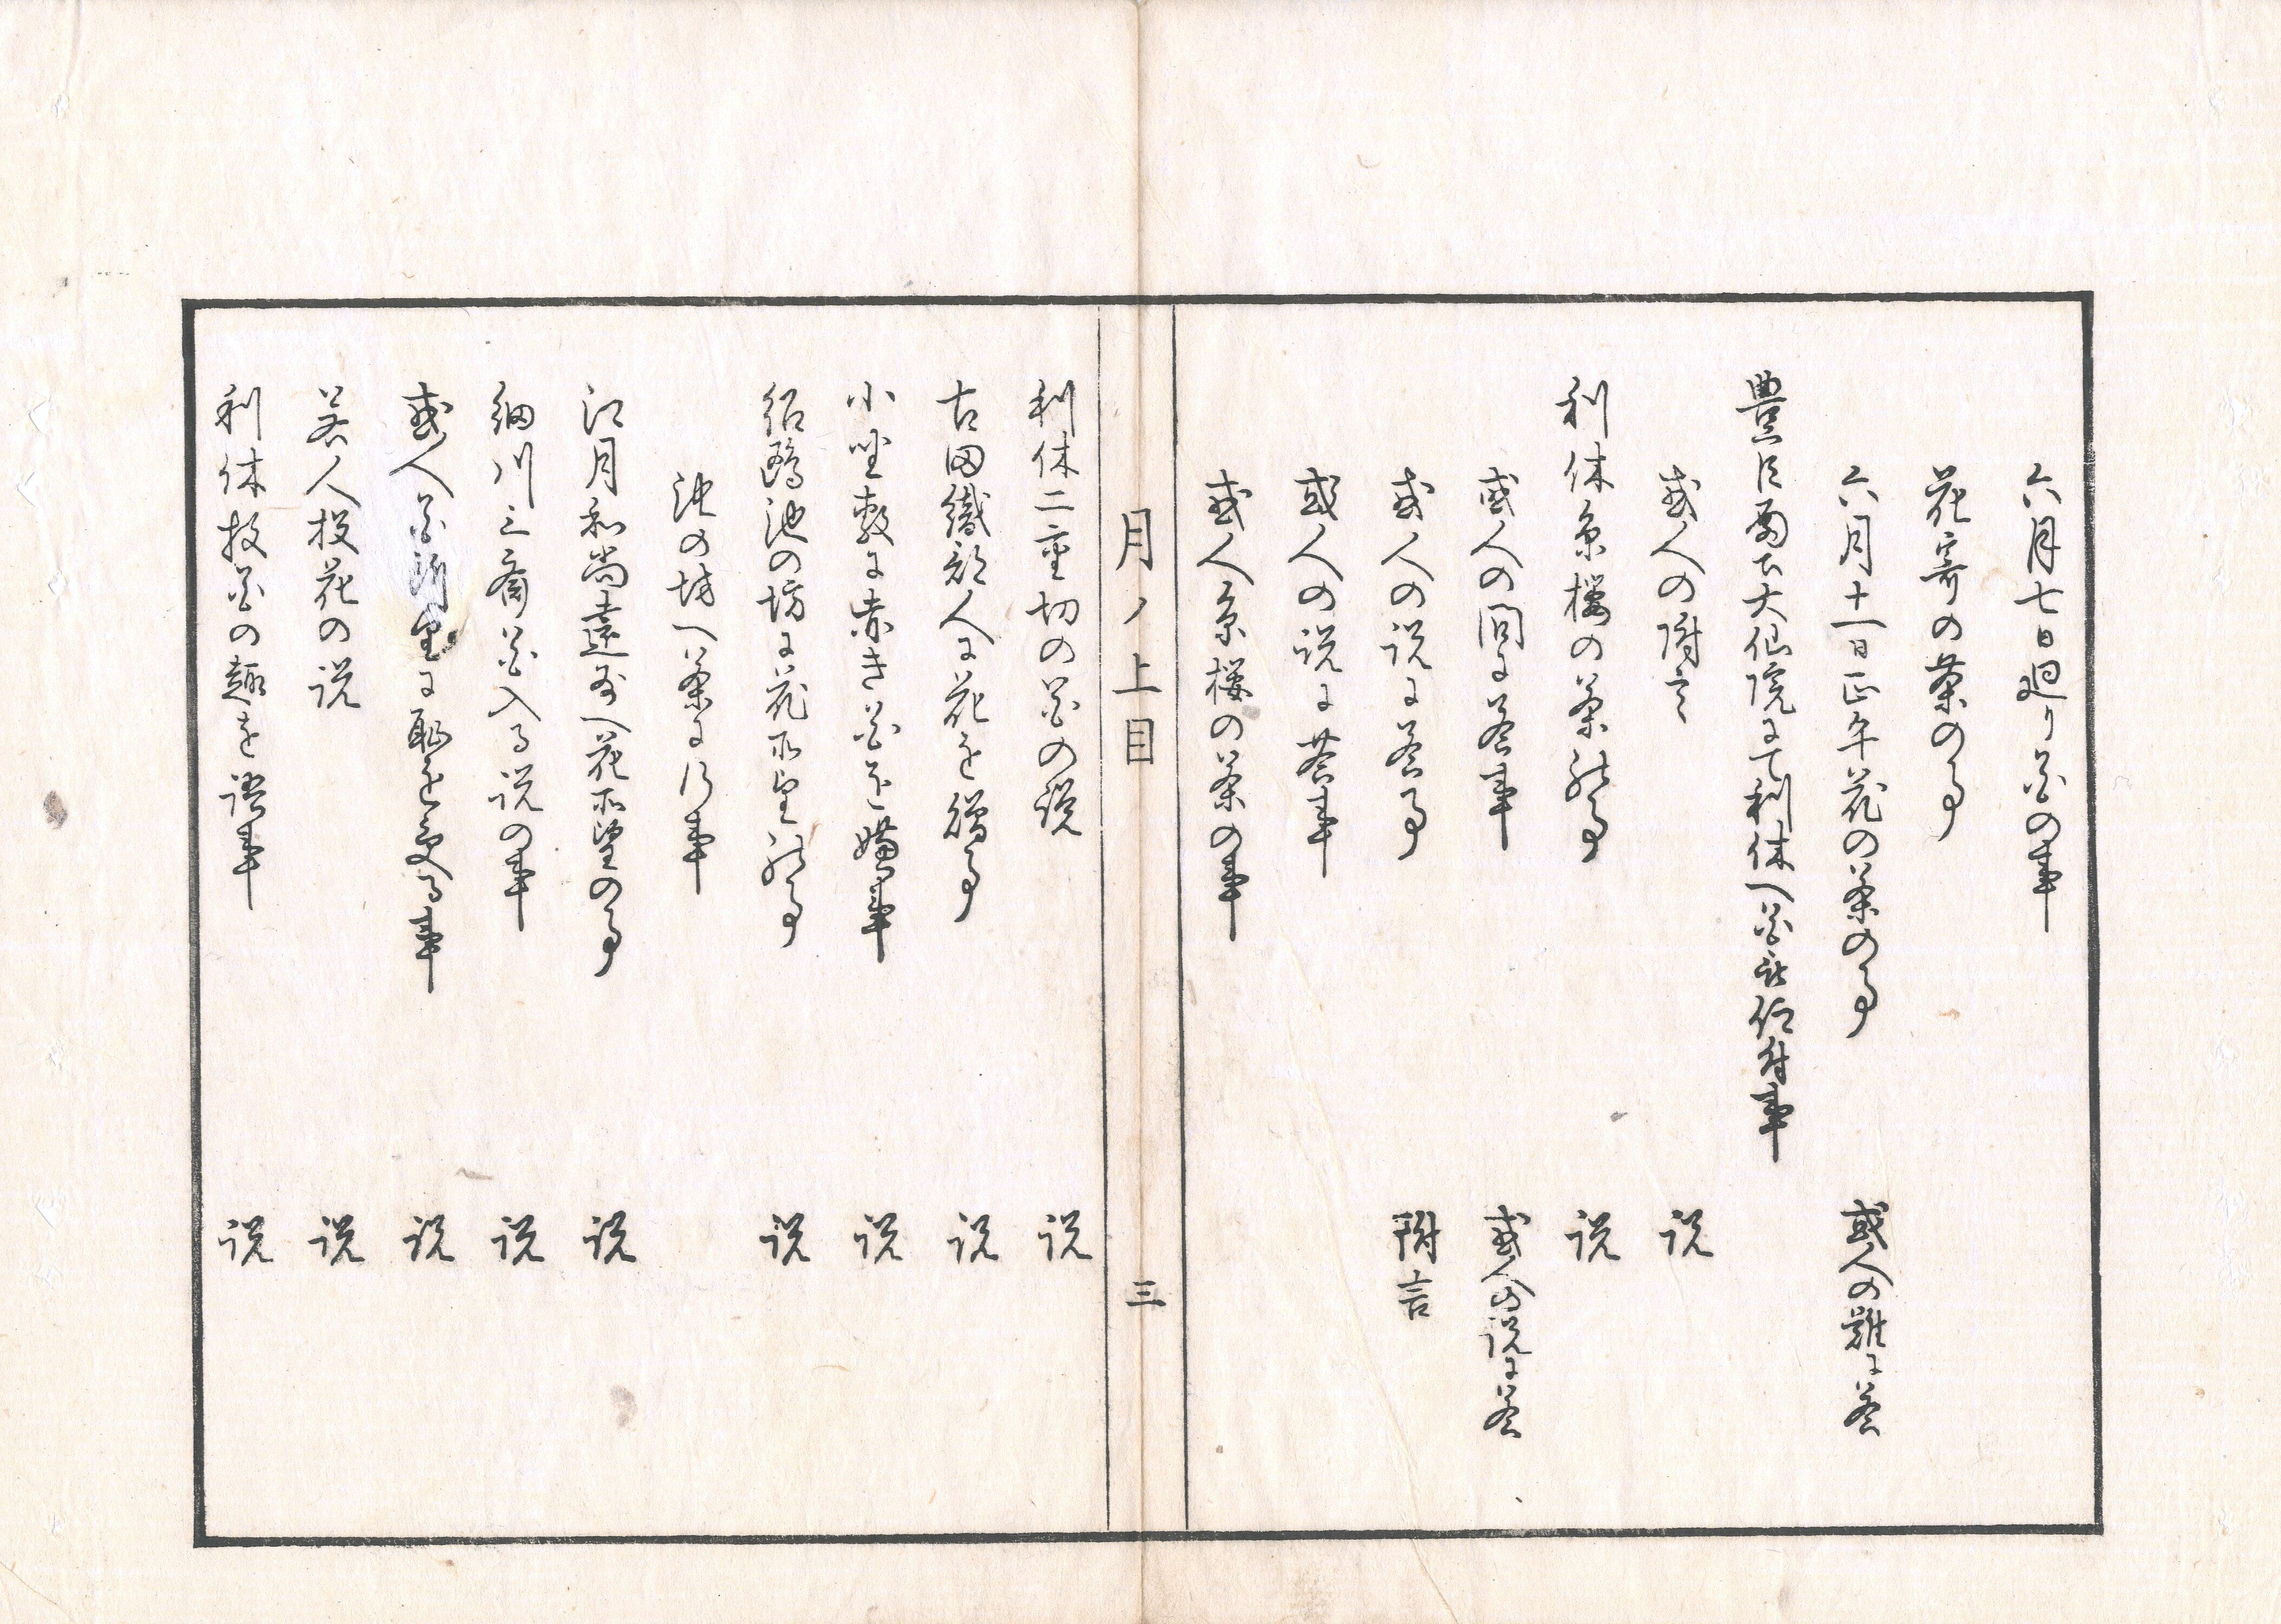 六月七日廻り花の事
花寄の茶の事
六月十一日正午花の茶の事　或人の難に答
豊臣殿下大仙院にて利休へ花被仰付事
或人の附言　説
利休糸桜の茶能事　説
或人の問に答事　或人の説に答
或人の説に答事　附言
或人の説に答事
或人糸桜の茶の事
月ノ上目　三
利休二重切の花の説　説
古田織部人に花を贈事　説
小坐敷に赤き花を嫌事　説
紹鷗池の坊に花所望の事　説
池の坊へ茶に行事
江月和尚遠州へ花所望の事　説
細川三斎花入る説の事　説
或人花所望に恥を受る事　説
或人投花の説　説
利休投花の趣を語事　説